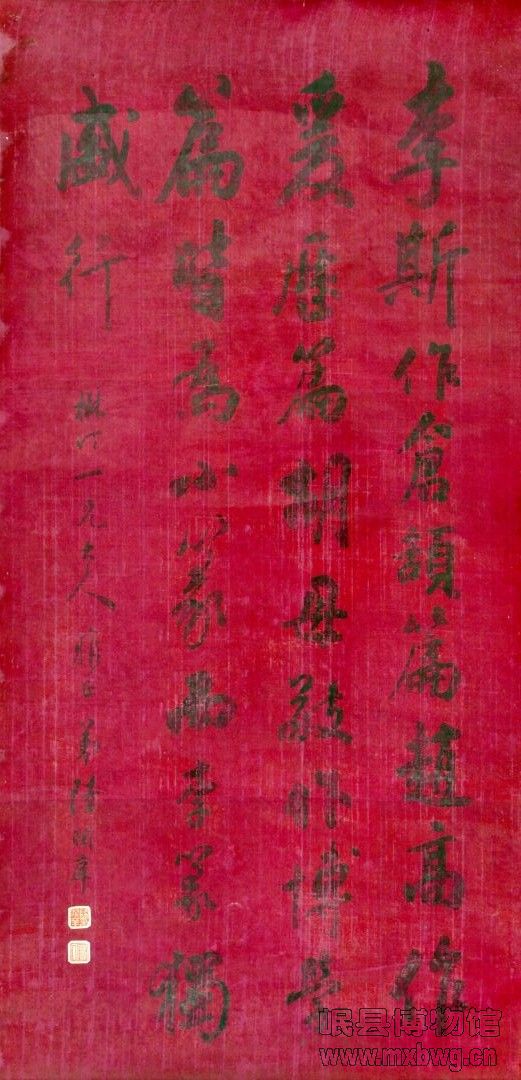 李斯作倉頡篇趙高作
爰歷篇胡毋敬作博學
篇皆為小篆而李篆獨
盛行
一元大人 弟陸潤庠
岷县博物馆
www.mxbwg.cn